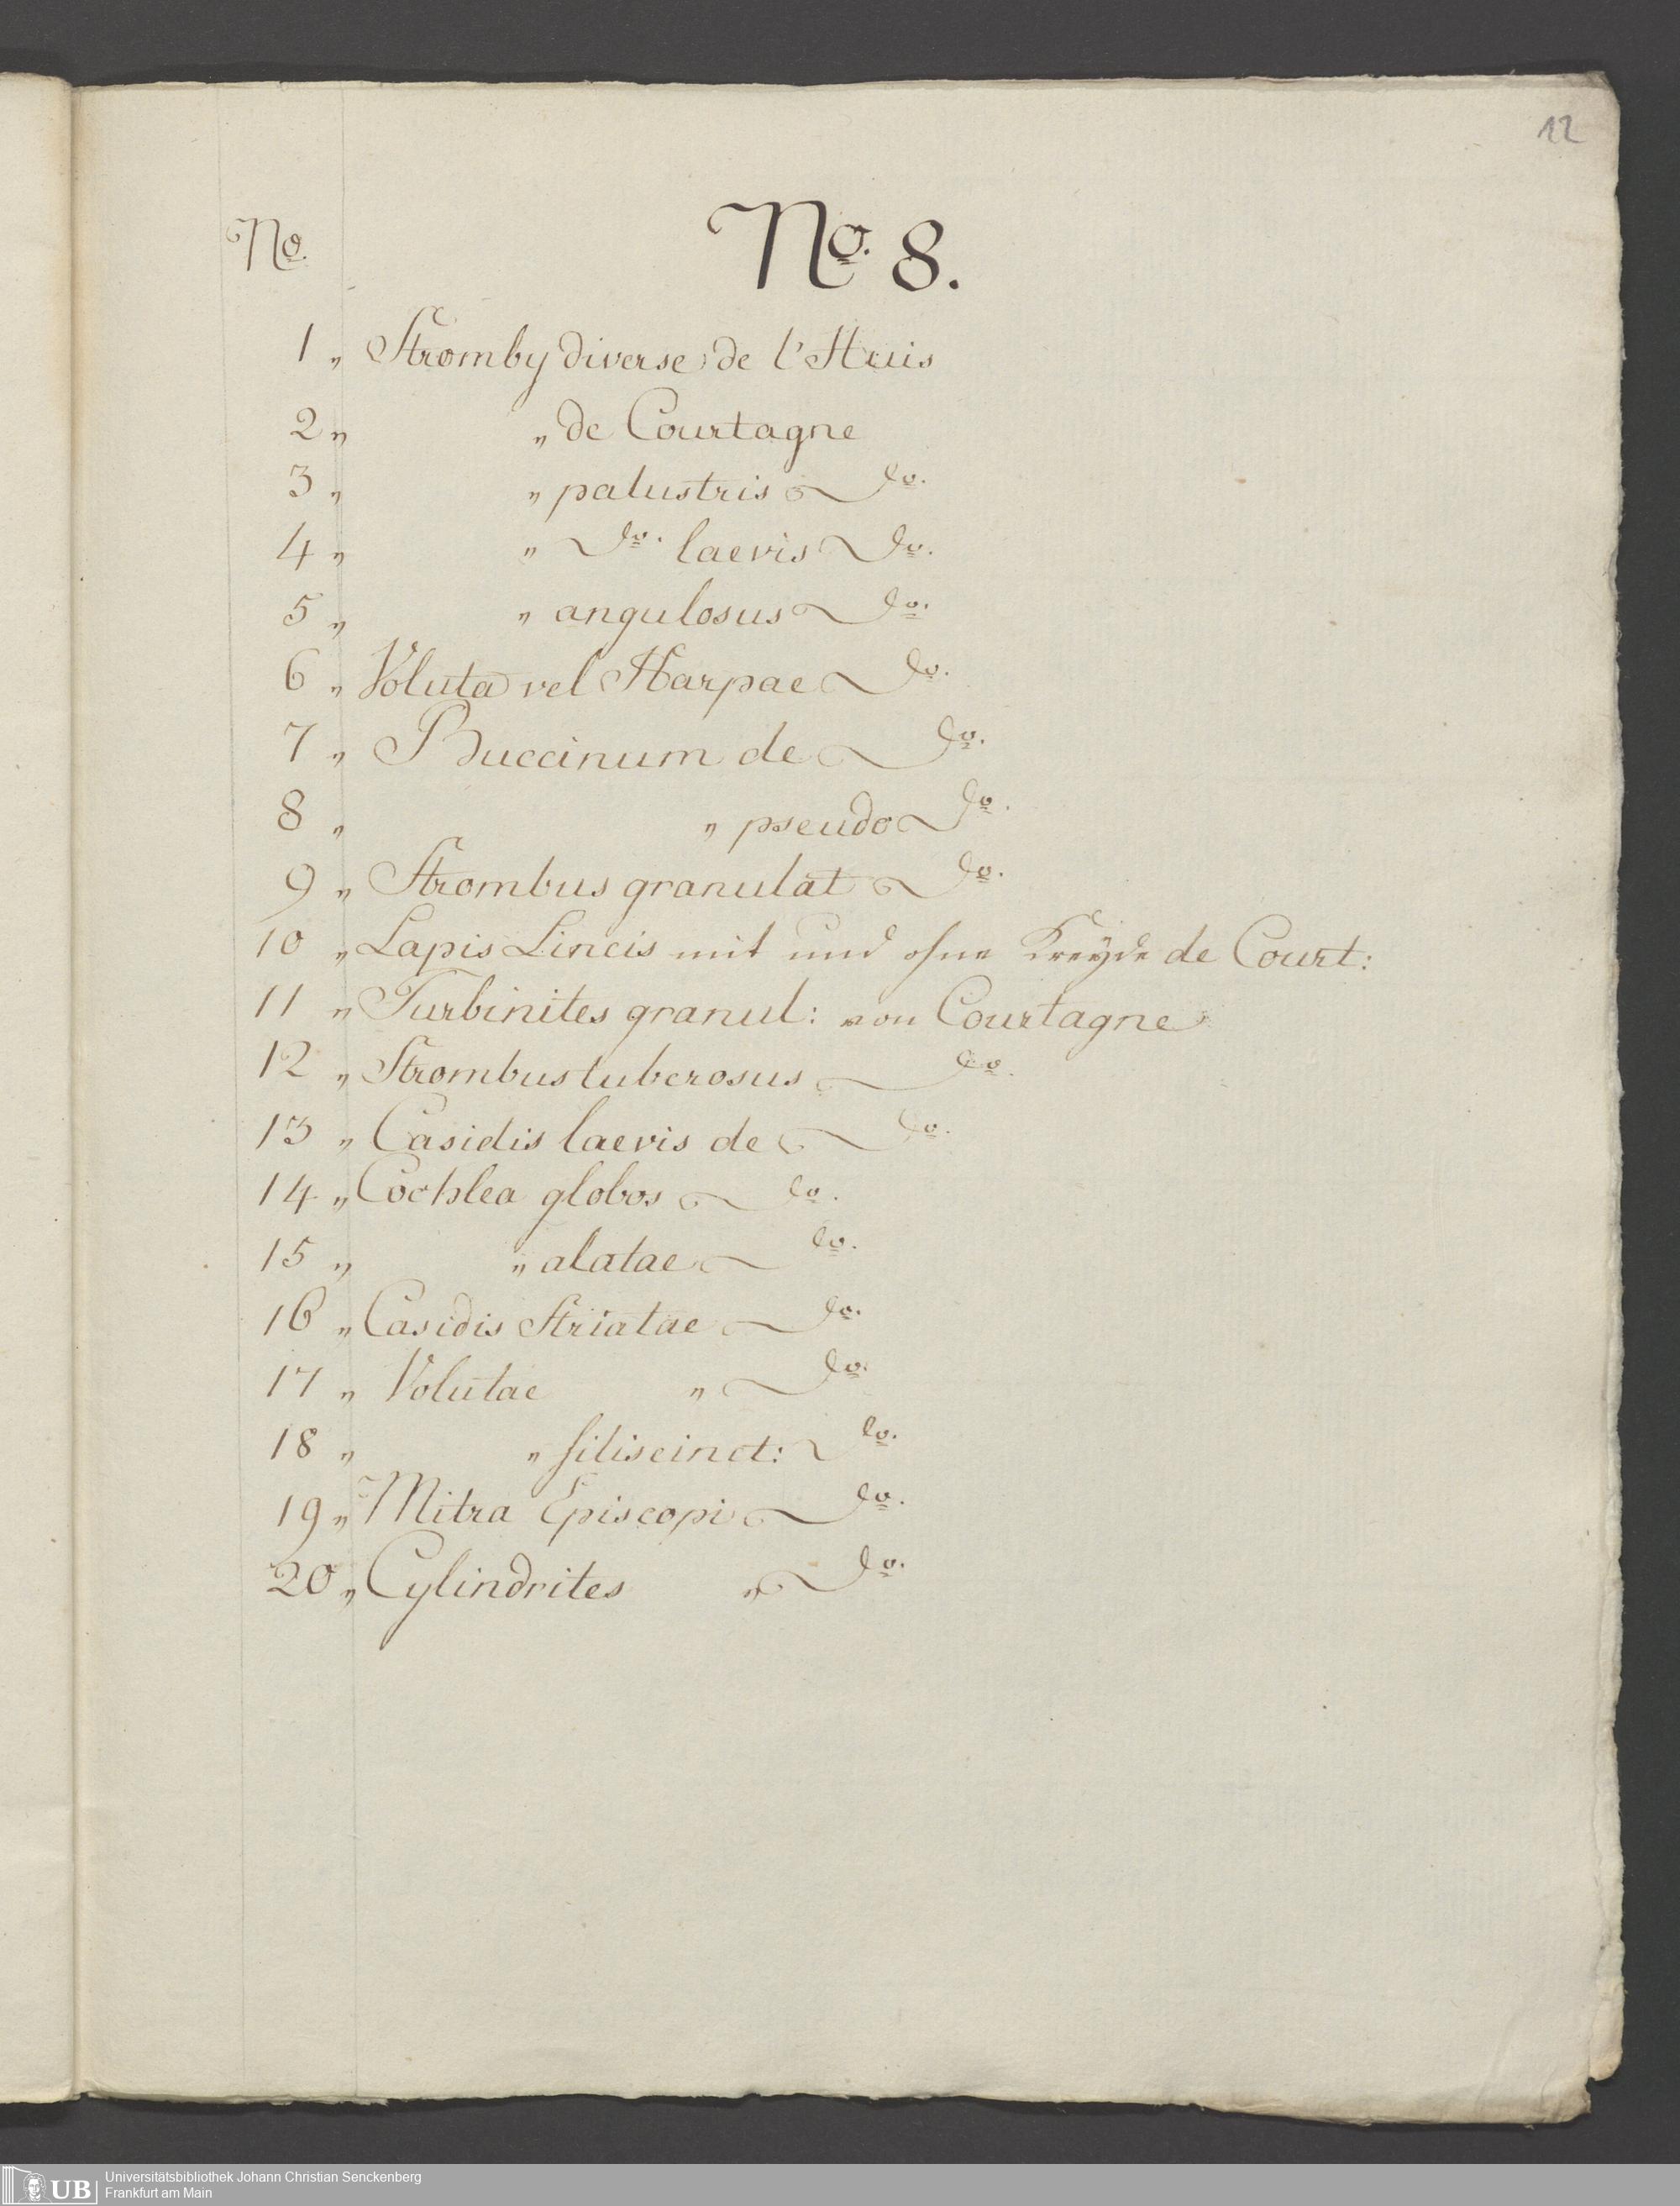 12
No.
No. 8.
1 „ Stromby diverse de l'Huis
2 „ „ de Courtagne
3 „ „ palustris do.
4 „ „ do. laevis do.
5 „ „ angulosus do.
6 „ Voluta vel Harpae do.
7 „ Buccinum de do.
8 „ „ pseudo do.
9 „ Strombus granulat do.
10 „ Lapis Lincis mit und ohne Kreyde de Court:
11 „ Turbinites granul: von Courtagne
12 „ Strombus tuberosus do.
13 „ Casidis laevis de do.
14 „ Cochlea globos do.
15 „ „ alatae do.
16 „ Casidis Striatae do.
17 „ Volutae „ do.
18 „ „ filiscinct: do.
19 „ Mitra Episcopi do.
20 „ Cylindrites „ do.
UB
Universitätsbibliothek Johann Christian Senckenberg
Frankfurt am Main